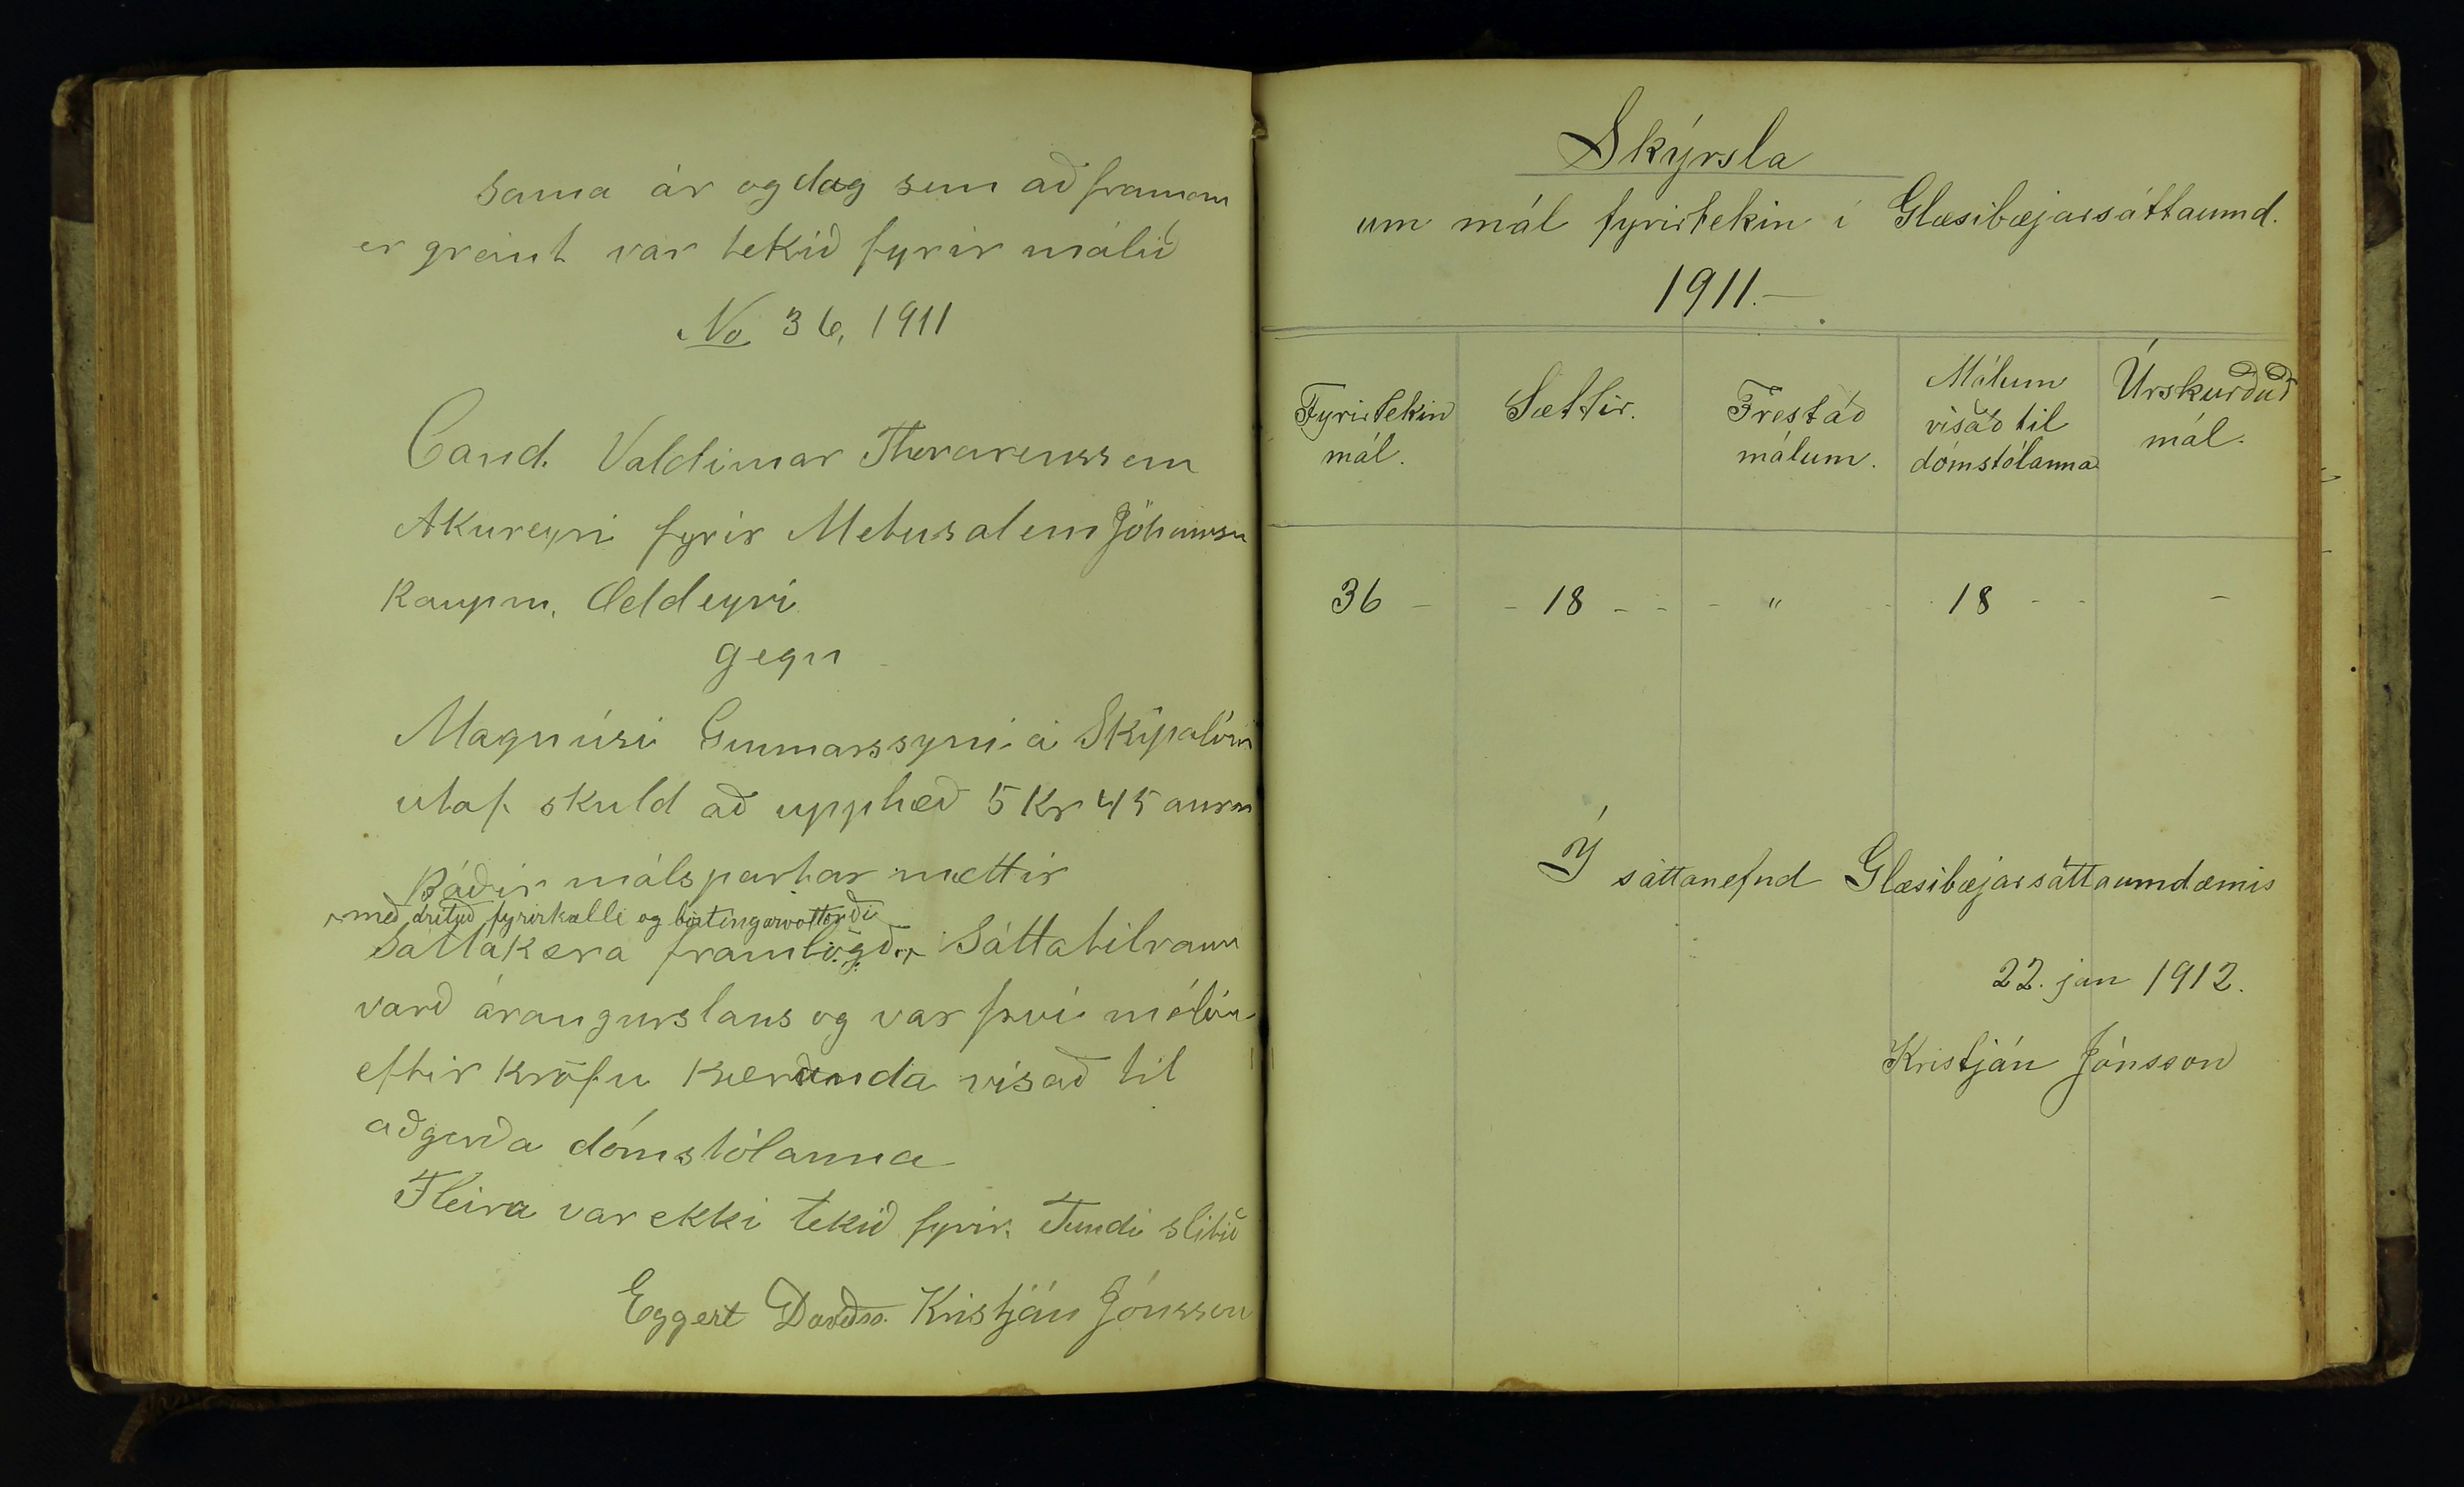 Sama ár og dag sem að framan
er greint var tekið fyrir málið
No 36, 1911
Cand. Valdimar Thorarenssen
Akureyri fyrir Metusalem Jóhannsn
Kaupm. Oddeyri
gegn
Magnúsi Gunnarssyni á Skipalóni
utaf skuld að upphæð 5 Kr 45 aurm
Báðir málspartar mættir
með áritað fyrirkalli og birtingarvottorði
Sáttakæra framlögð. Sáttatilraun
varð árangurslaus og var því málinu
eftir kröfu kæranda visað til
aðgerða dómstólanna
Fleira var ekki tekið fyrir. Fundi slitið
Eggert Davíðss. Kristján Jónsson
Skýrsla
um mál fyrirtekin í Glæsibæjarsáttaumd.
1911.-
Fyrirtekin mál. Sættir. Frestað málum. Málum visað til dómstólanna Úrskurðuð mál.
36 - - 18 - - - " - 18 - - -
Í sáttanefnd Glæsibæjarsáttaumdæmis
22. jan 1912.
Kristján Jónsson